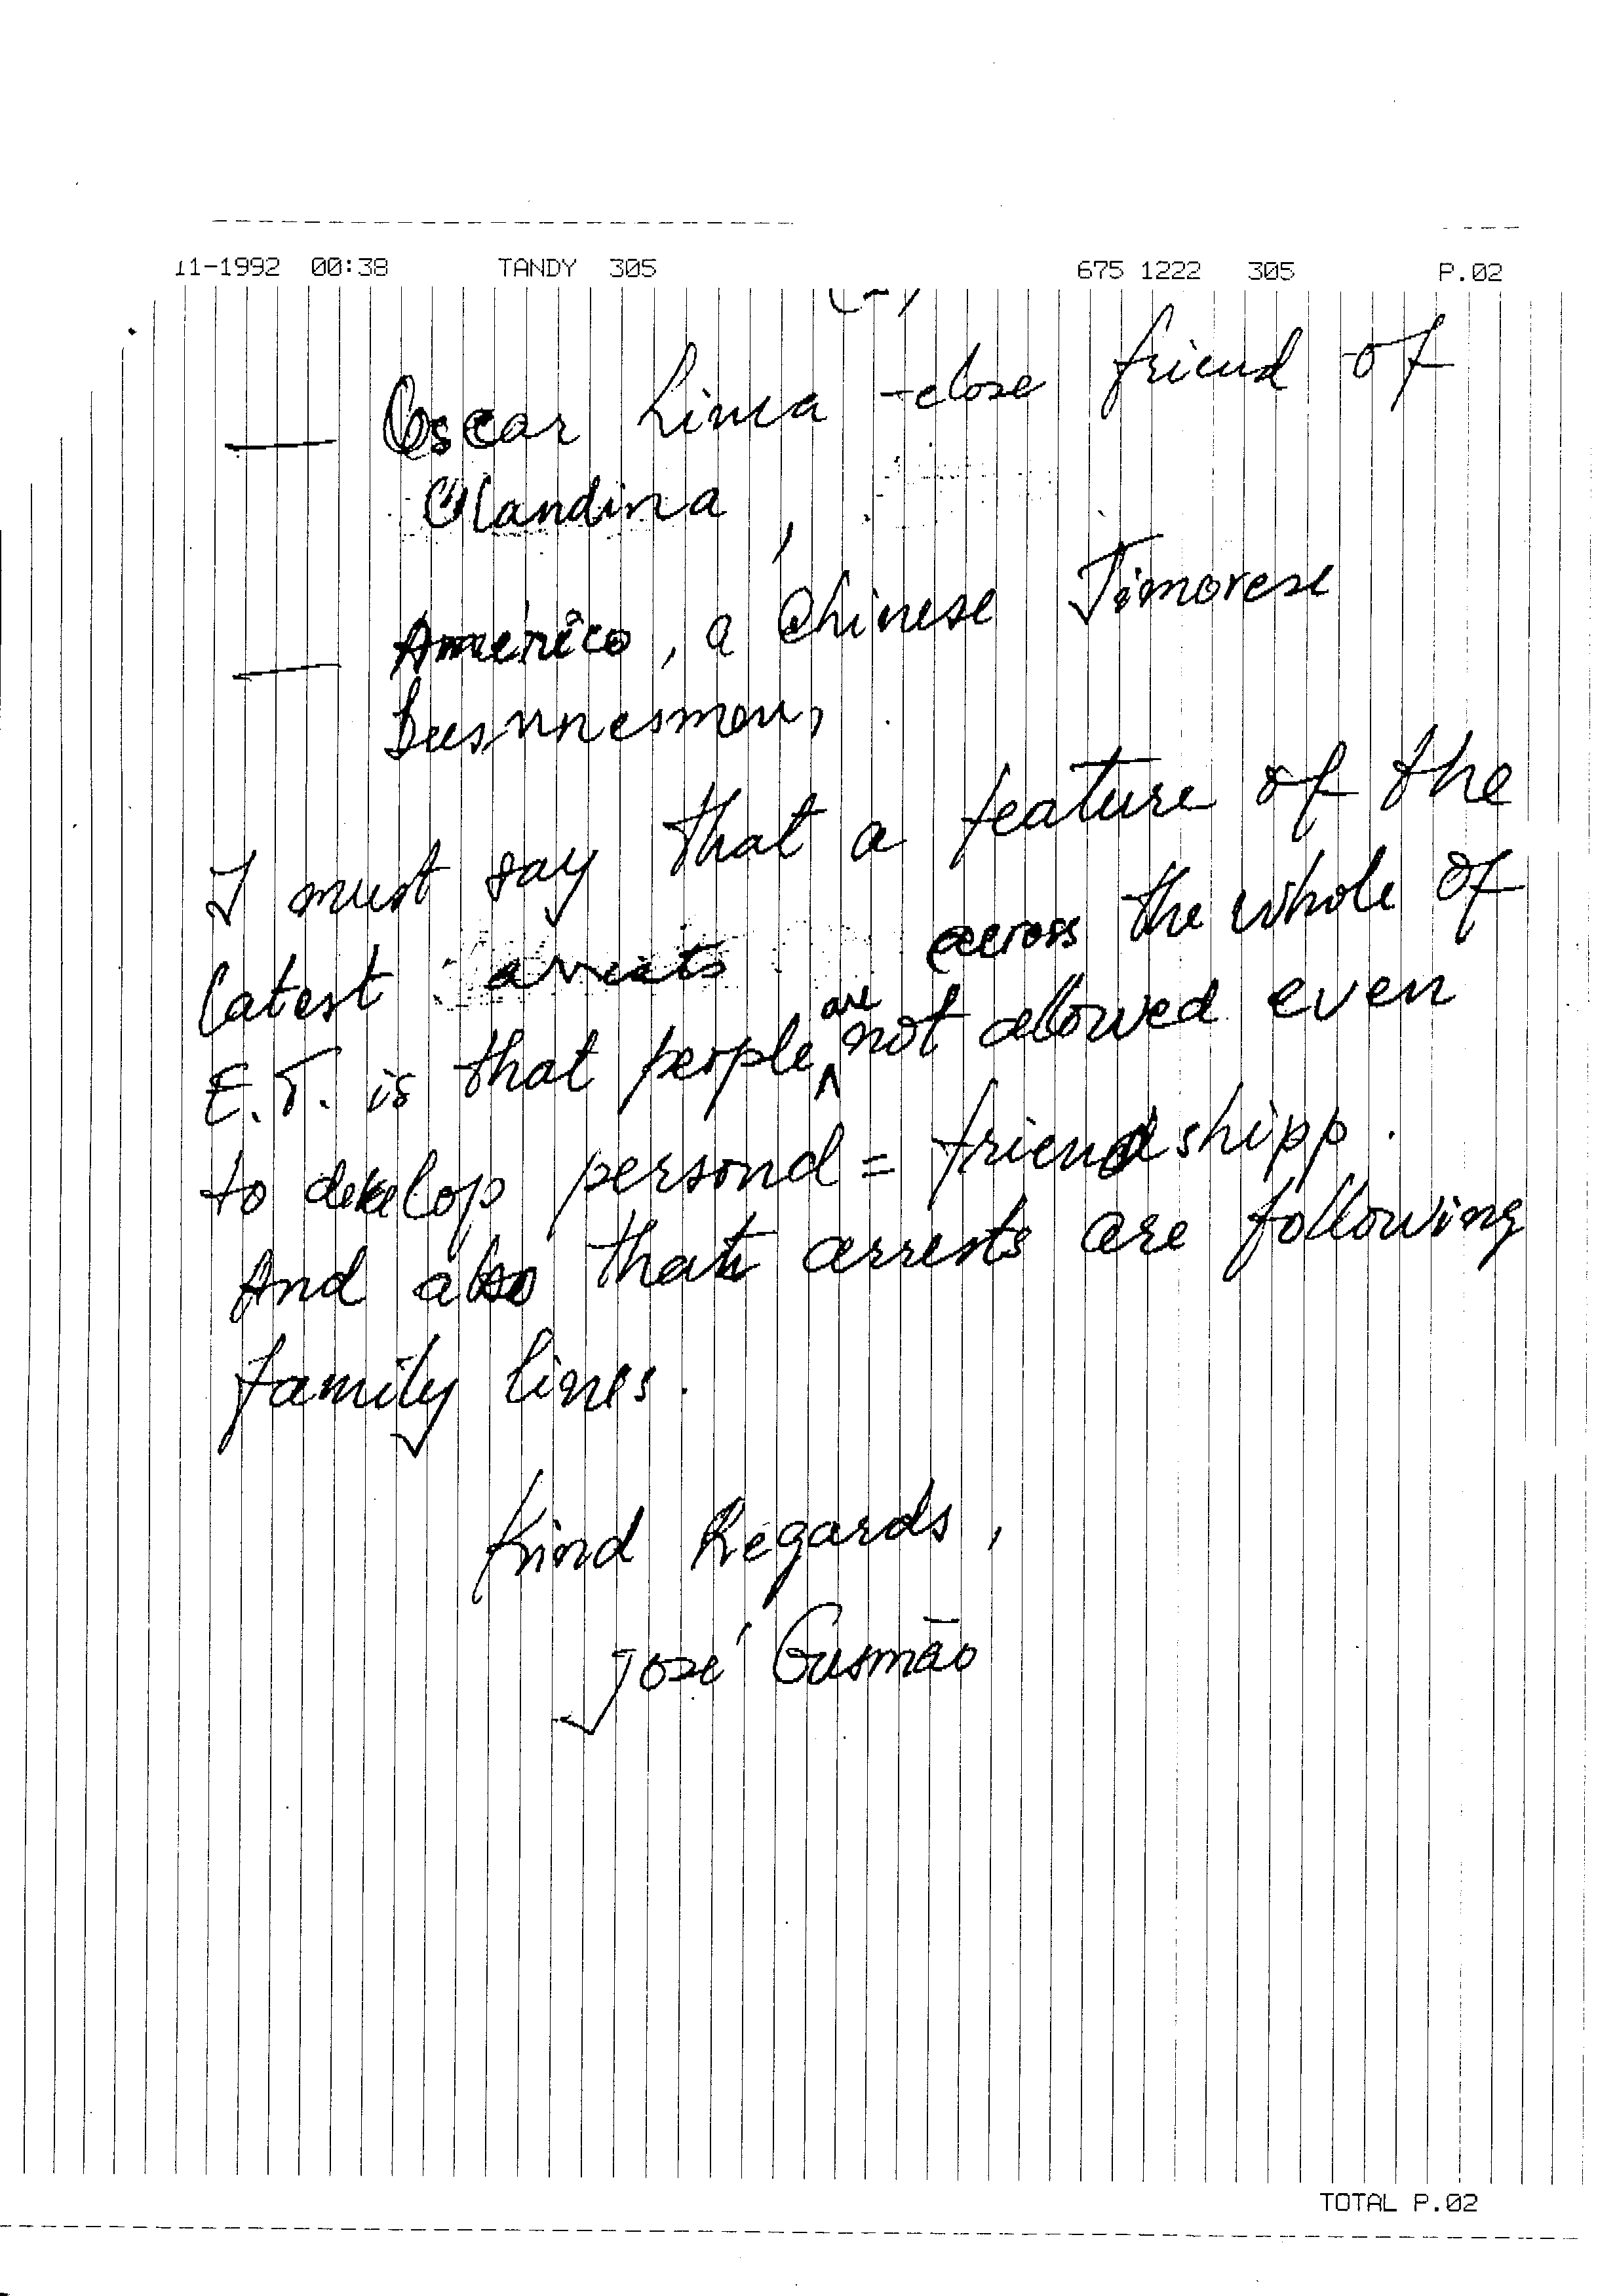 11-1992 00:38 TANDY 305 675 1222 305 P.02
— Oscar Lima - close friend of
Olandina,
— Américo, a Chinese Timorese
busnnesmen,
I must say that a feature of the
latest arrests across the whole of
E.T. is that people are not allowed even
to develop personal = friendshipp.
And also that arrests are following
family lines.
Kind Regards,
José Gusmão
TOTAL P.02